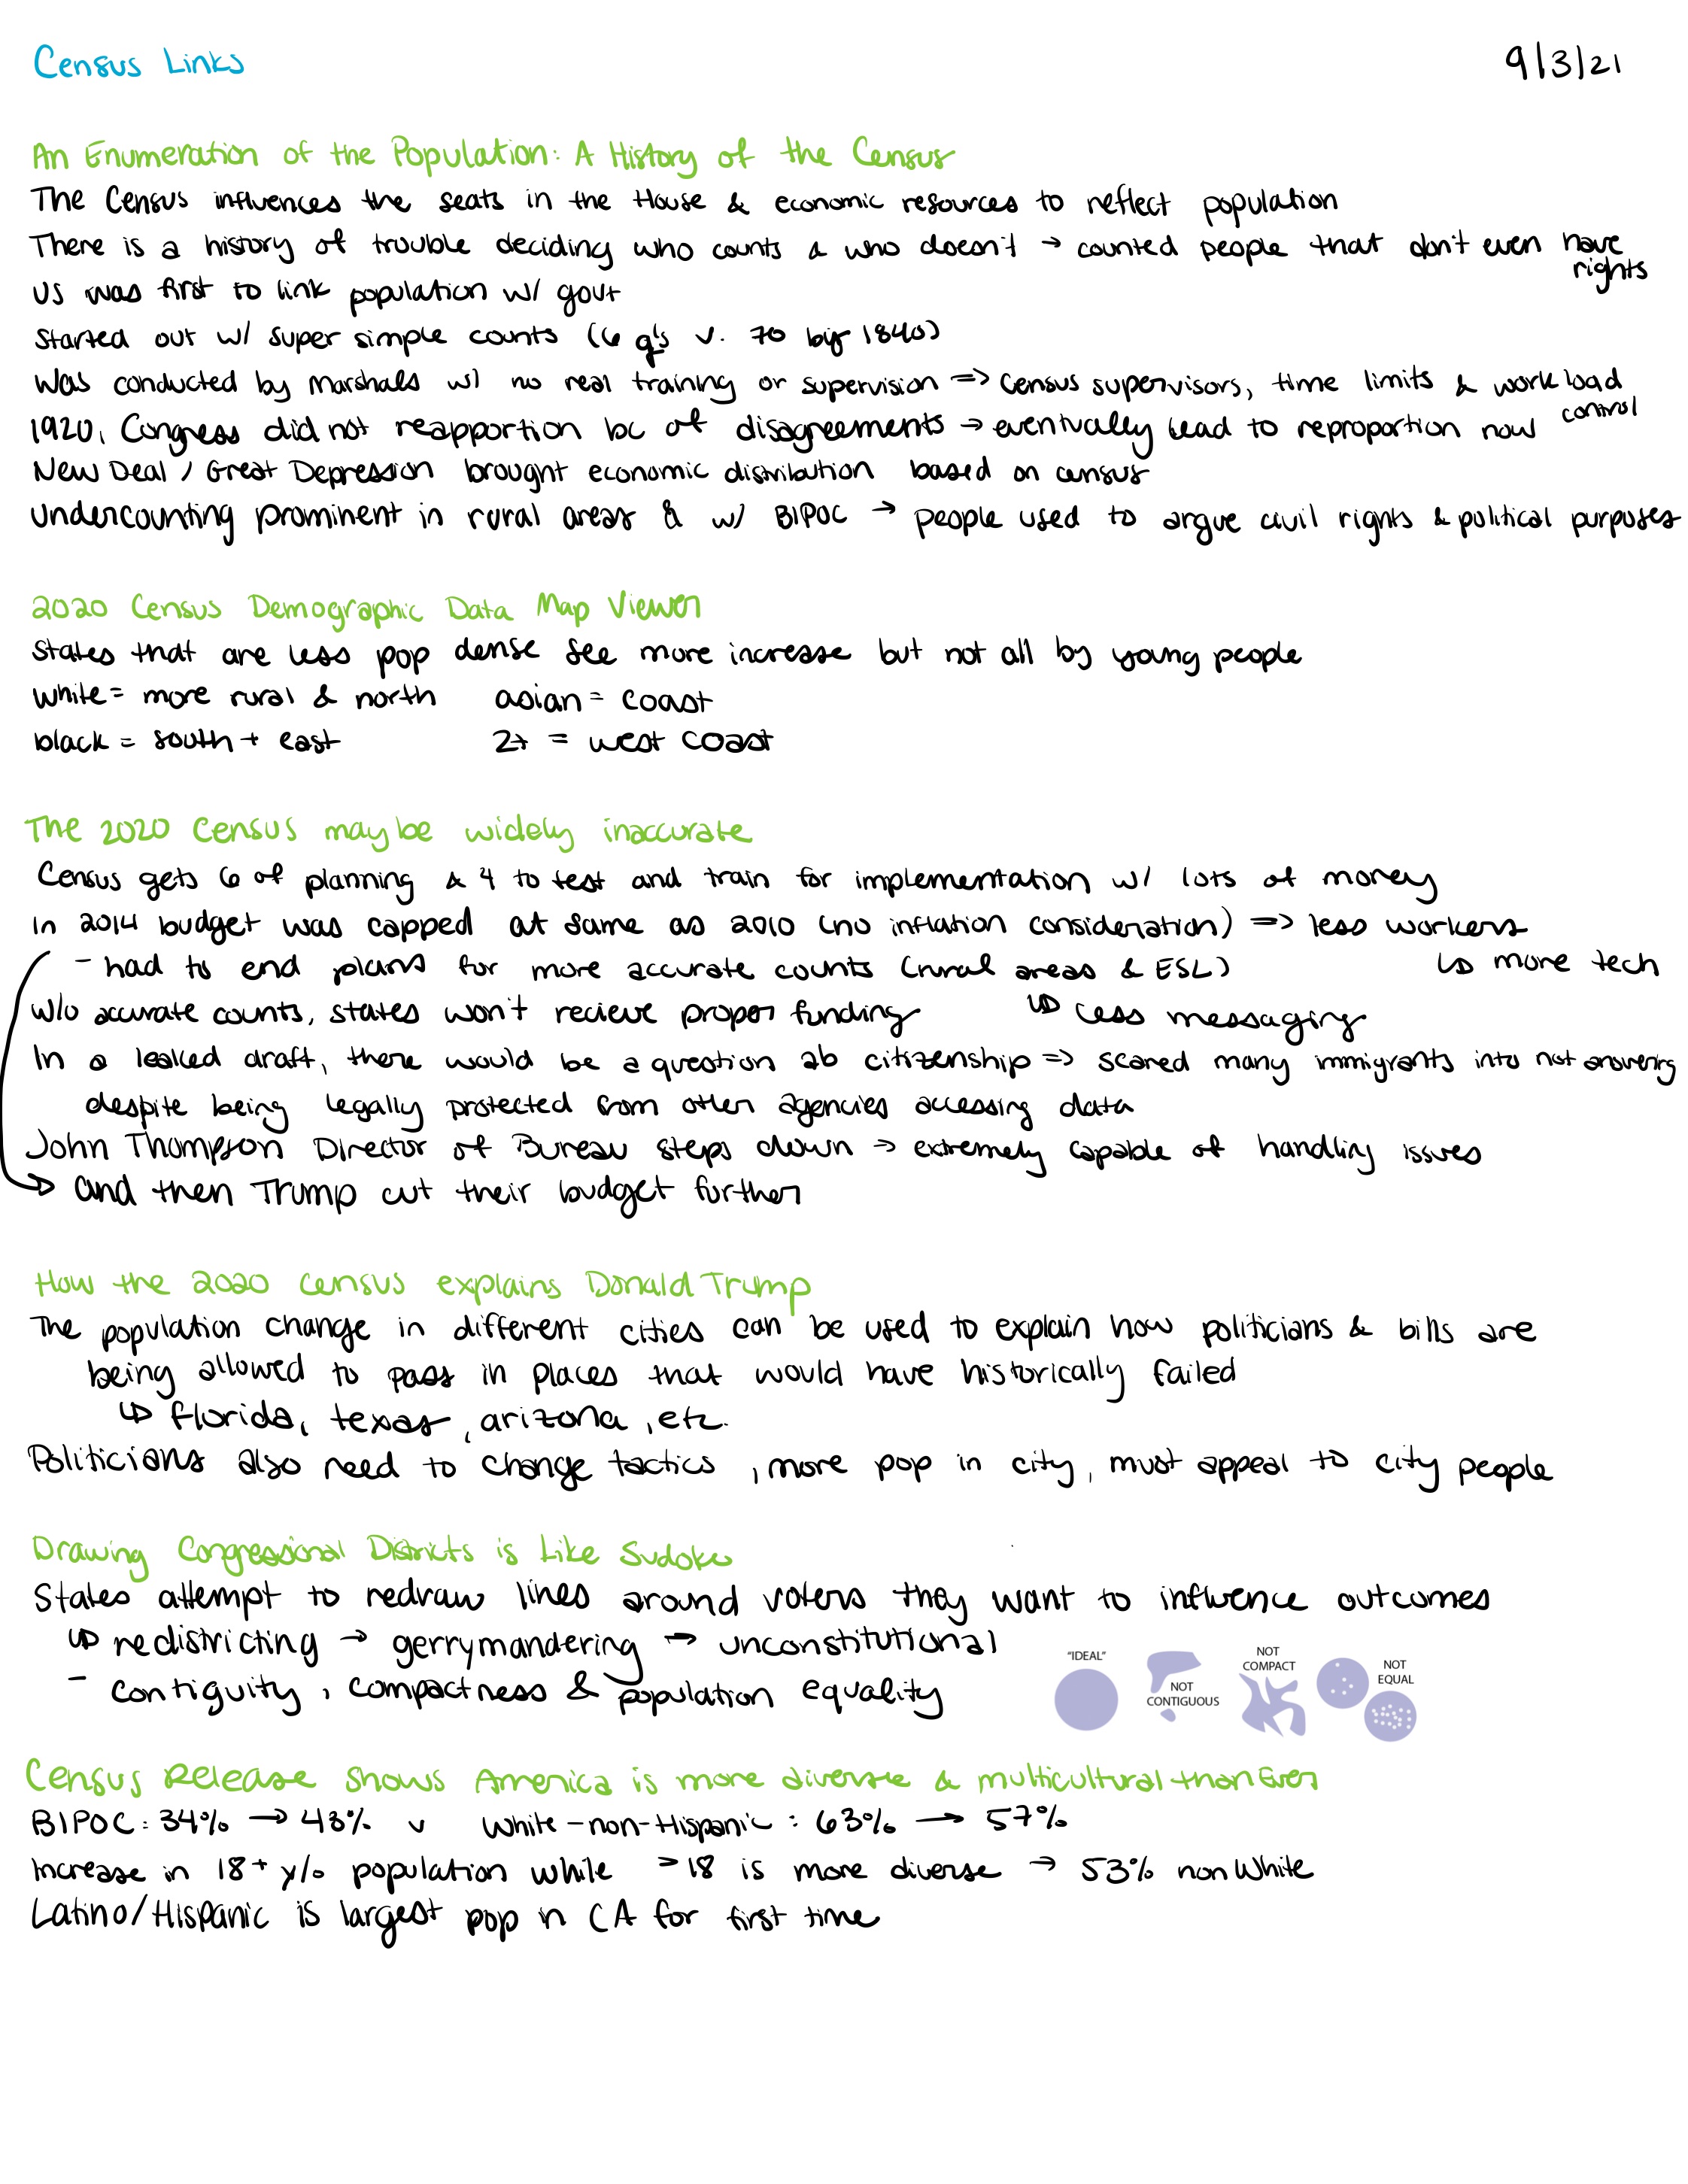 Census Links
9/3/21
An Enumeration of the Population: A History of the Census
The Census influences the seats in the House & economic resources to reflect population
There is a history of trouble deciding who counts & who doesn't → counted people that don't even have
rights
US was first to link population w/ govt
Started out w/ super simple counts (6 q's v. 70 by 1840)
Was conducted by Marshals w/ no real training or supervision => Census supervisors, time limits & work load
control
1920, Congress did not reapportion bc of disagreements → eventually lead to reproportion now
New Deal / Great Depression brought economic distribution based on census
Undercounting prominent in rural areas & w/ BIPOC → people used to argue civil rights & political purposes
2020 Census Demographic Data Map Viewer
States that are less pop dense see more increase but not all by young people
white = more rural & north asian = coast
black = south + east 2+ = west coast
The 2020 Census may be widely inaccurate
Census gets 6 of planning & 4 to test and train for implementation w/ lots of money
In 2014 budget was capped at same as 2010 (no inflation consideration) => less workers
- had to end plans for more accurate counts (rural areas & ESL) ↳ more tech
w/o accurate counts, states won't recieve proper funding ↳ less messaging
In a leaked draft, there would be a question ab citizenship => scared many immigrants into not answering
despite being legally protected from other agencies accessing data
John Thompson Director of Bureau steps down → extremely capable of handling issues
→ and then Trump cut their budget further
How the 2020 census explains Donald Trump
The population change in different cities can be used to explain how politicians & bills are
being allowed to pass in places that would have historically failed
↳ florida, texas, arizona, etc.
Politicians also need to change tactics, more pop in city, must appeal to city people
Drawing Congressional Districts is Like Sudoku
States attempt to redraw lines around voters they want to influence outcomes
↳ redistricting → gerrymandering → unconstitutional
- contiguity, compactness & population equality
"IDEAL"
NOT
CONTIGUOUS
NOT
COMPACT
NOT
EQUAL
Census Release shows America is more diverse & multicultural than Ever
BIPOC: 34% → 43% v White-non-Hispanic: 63% → 57%
Increase in 18+ y/o population while >18 is more diverse → 53% non White
Latino/Hispanic is largest pop in CA for first time